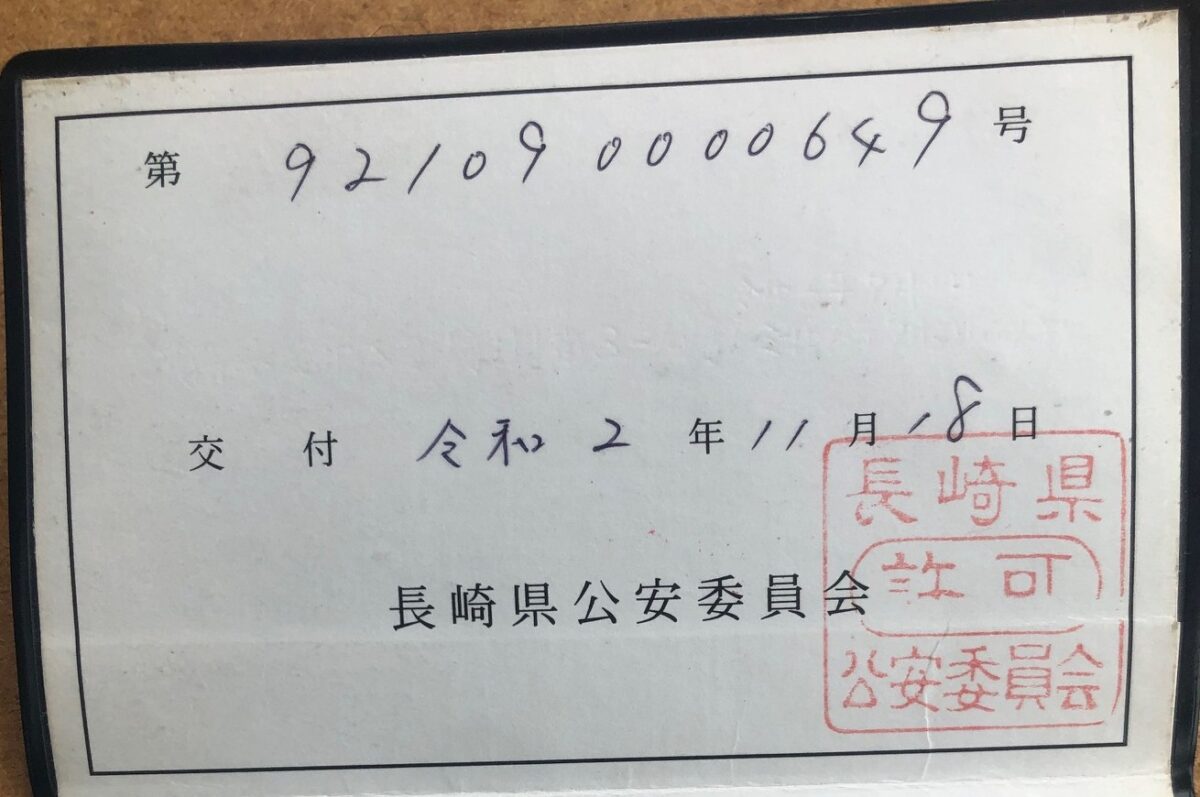 第 921090000649 号
交付 令和2年11月18日
長崎県公安委員会
長崎県
許可
公安委員会